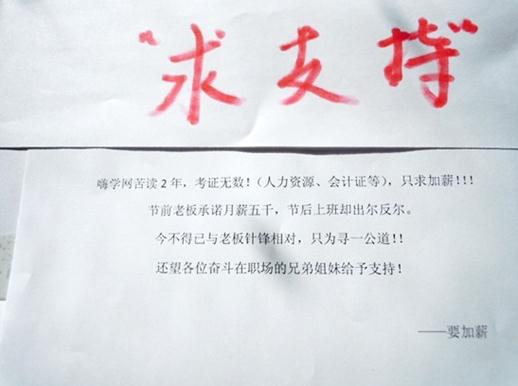 “求支持”
嗨学网苦读2年，考证无数！（人力资源、会计证等），只求加薪！！！
节前老板承诺月薪五千，节后上班却出尔反尔。
今不得已与老板针锋相对，只为寻一公道！！
还望各位奋斗在职场的兄弟姐妹给予支持！
——要加薪